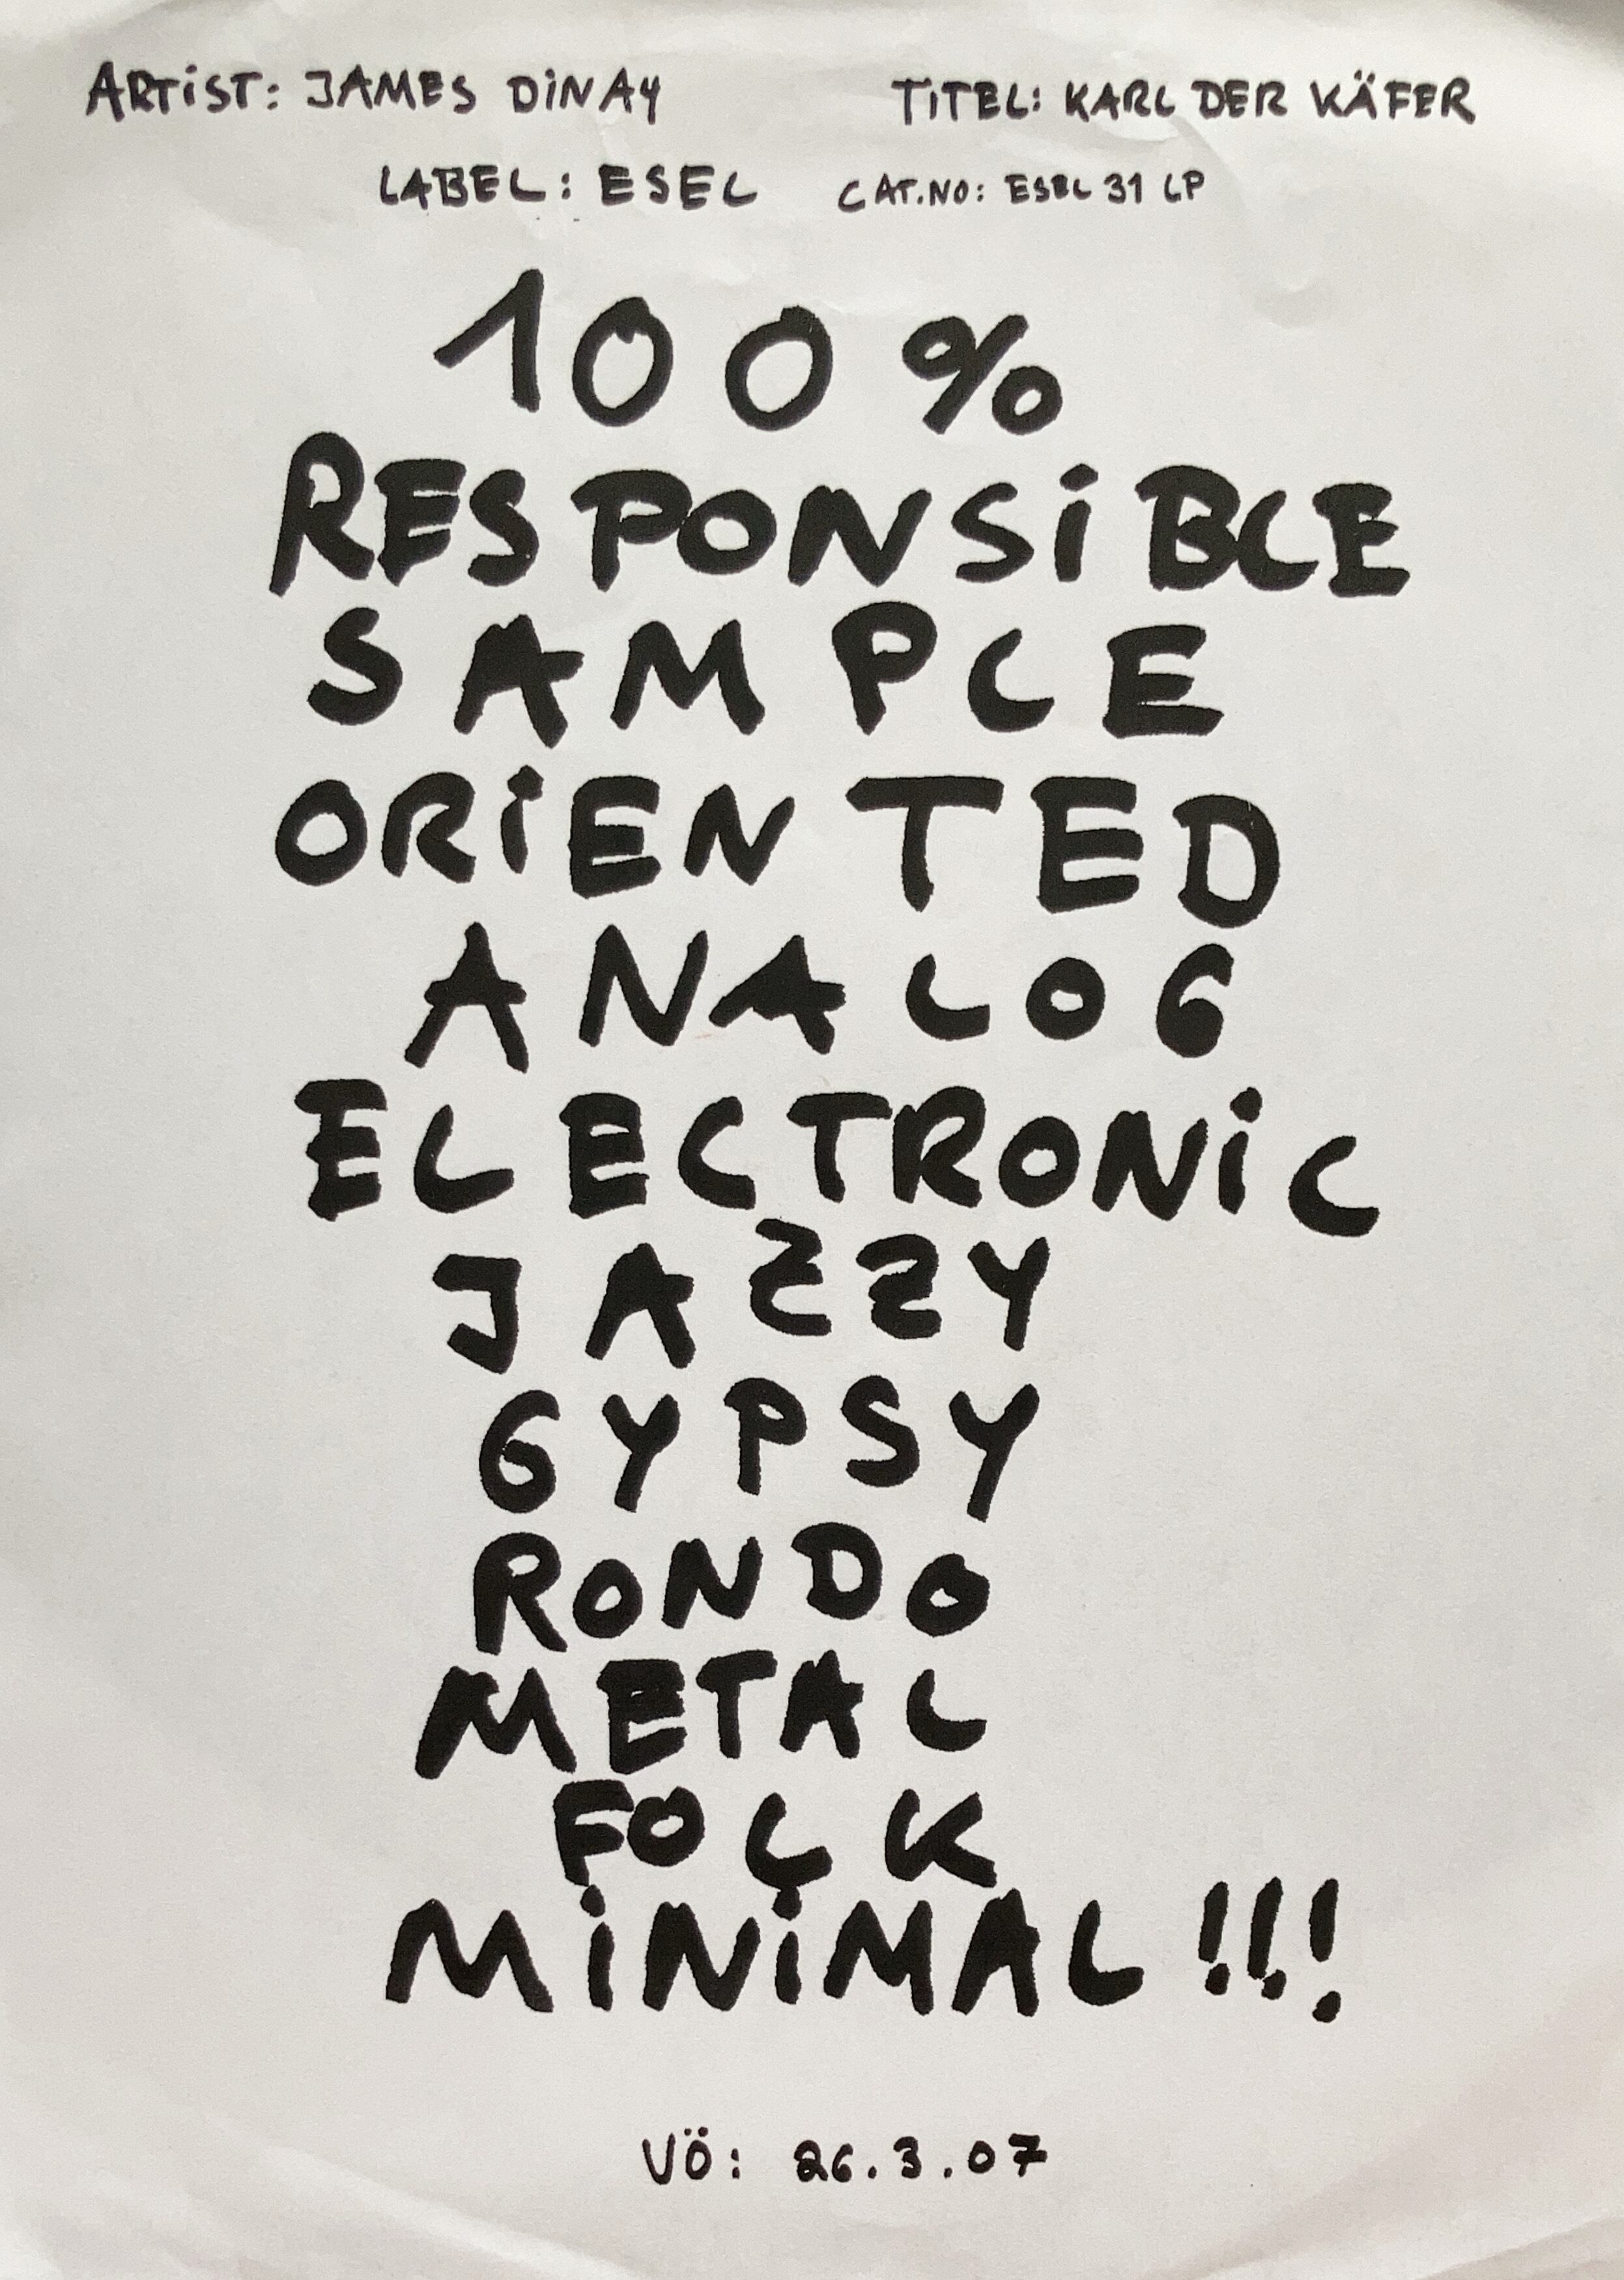 ARTiST: JAMES DiNAY TiTEL: KARL DER KÄFER
LABEL: ESEL CAT.NO: ESEL 31 LP
100%
RESPONSiBLE
SAMPLE
ORiENTED
ANALOG
ELECTRONiC
JAZZY
GYPSY
RONDO
METAL
FOLK
MiNiMAL!!!
VÖ: 26.3.07